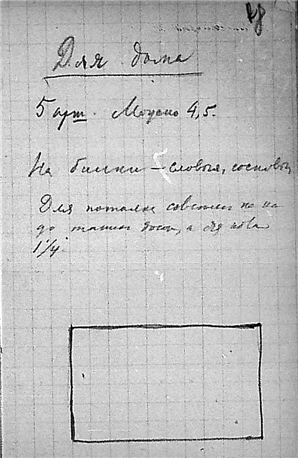 Для дома
5 арш. Можно 4,5.
На балки – еловыя, сосновы
Для потолка совсем не на
до таких досок, а для пола
1 1/4.